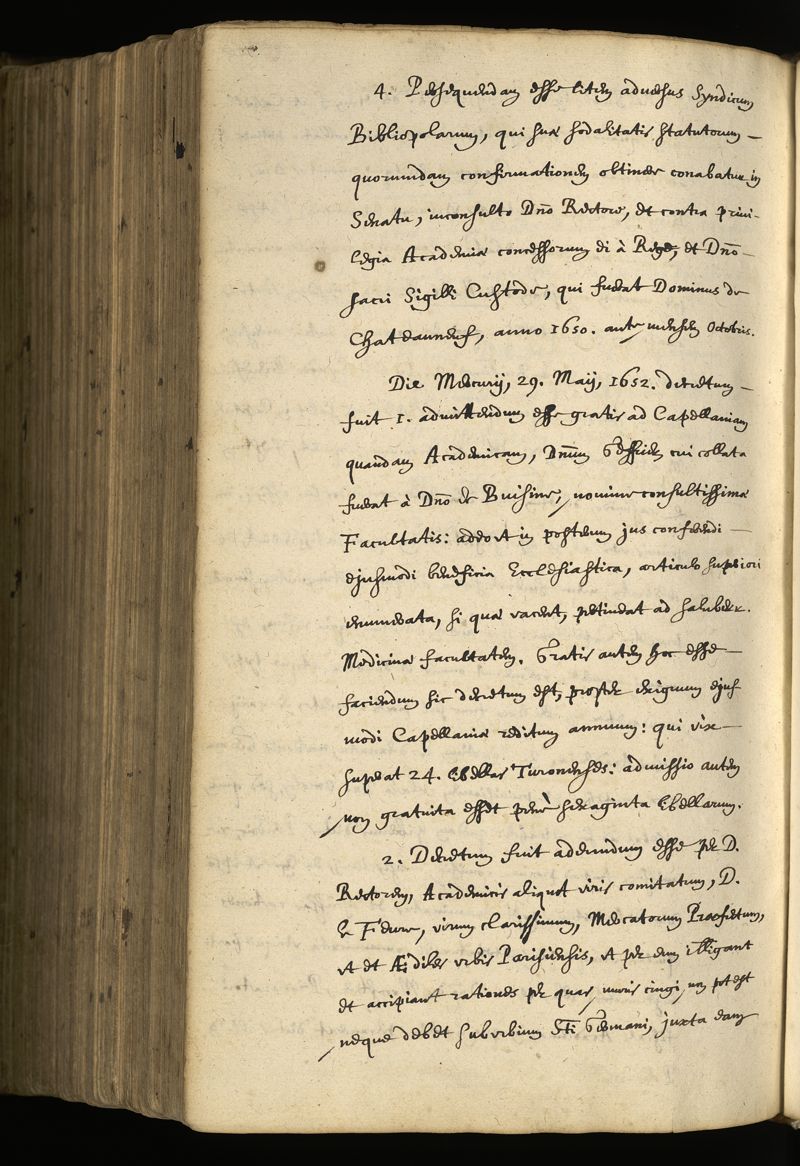 4. Persequendam esse litem adversus Syndicum
Bibliopolarum, qui suæ sodalitatis statutorum —
quorumdam confirmationem obtinere conabatur in
Senatu, inconsulto Dño Rectore, et contra privi-
legia Academiæ concessorum ei à Rege, et Dño —
sacri Sigilli Custode, qui fuerat Dominus de
Chateauneuf, anno 1650. ante mensem Octobris.
Die Mercurij, 29. Maij, 1652. decretum —
fuit 1. admittendum esse gratis ad Capellaniam
quandam Academicam, Dnum cui collata
fuerat à Dño de Buisine, nomine consultissimæ
Facultatis: adeo vt in posterum jus conferendi —
ejusmodi beneficia Ecclesiastica, articulo superiori
enumerata, si qua vacent, pertineat ad saluberr.
Medicinæ facultatem. Gratis autem hoc esse —
faciendum sic decretum est, propter exiguum ejus
modi Capellaniæ reditum annuum: qui vix —
superat 24. libellas Turonenses: admissio autem
non gratuita esset penè sexaginta libellarum.
2. Decretum fuit adeundum esse per D.
Rectorem, Academicis aliquot viris comitatum, D.
le Feron, virum clarissimum, Mercatorum Præfectum,
vt et Ædiles vrbis Parisiensis, vt per eum intelligant
et accipiant rationes per quas muris cingi non potest
neque debet suburbium Sti Germani, juxta eam